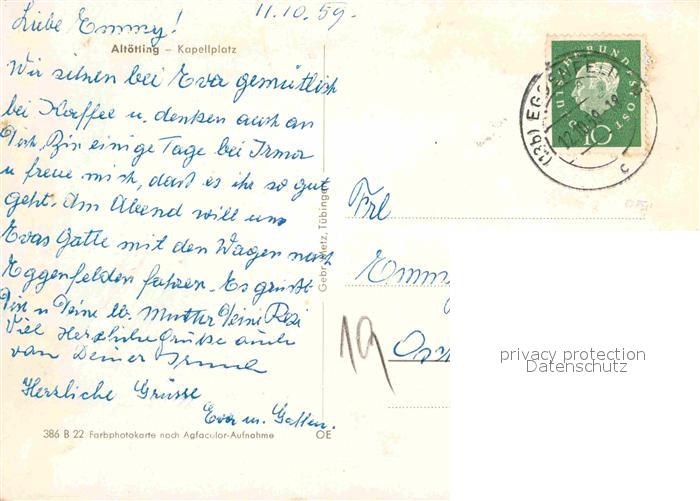 11.10.59.
Liebe Emmy!
Altötting – Kapellplatz
Wir sitzen bei Eva gemütlich
bei Kaffee u. denken auch an
Dich. Bin einige Tage bei Irma
u freue mich, daß es ihr so gut
geht. Am Abend will uns
Evas Gatte mit den Wagen nach
Eggenfelden fahren. Es grüßt
Dich u Deine lb. Mutter Deine Resi
Viel Herzliche Grüße auch
von Deiner
Herzliche Grüsse
Eva u. Gatten.
386 B 22 Farbphotokarte nach Agfacolor-Aufnahme OE
Gebr. Metz, Tübingen
DEUTSCHE BUNDESPOST
10
(13b) EGGENFELDEN
12.10.59.-19
c
Frl
Emmy
19
privacy protection
Datenschutz